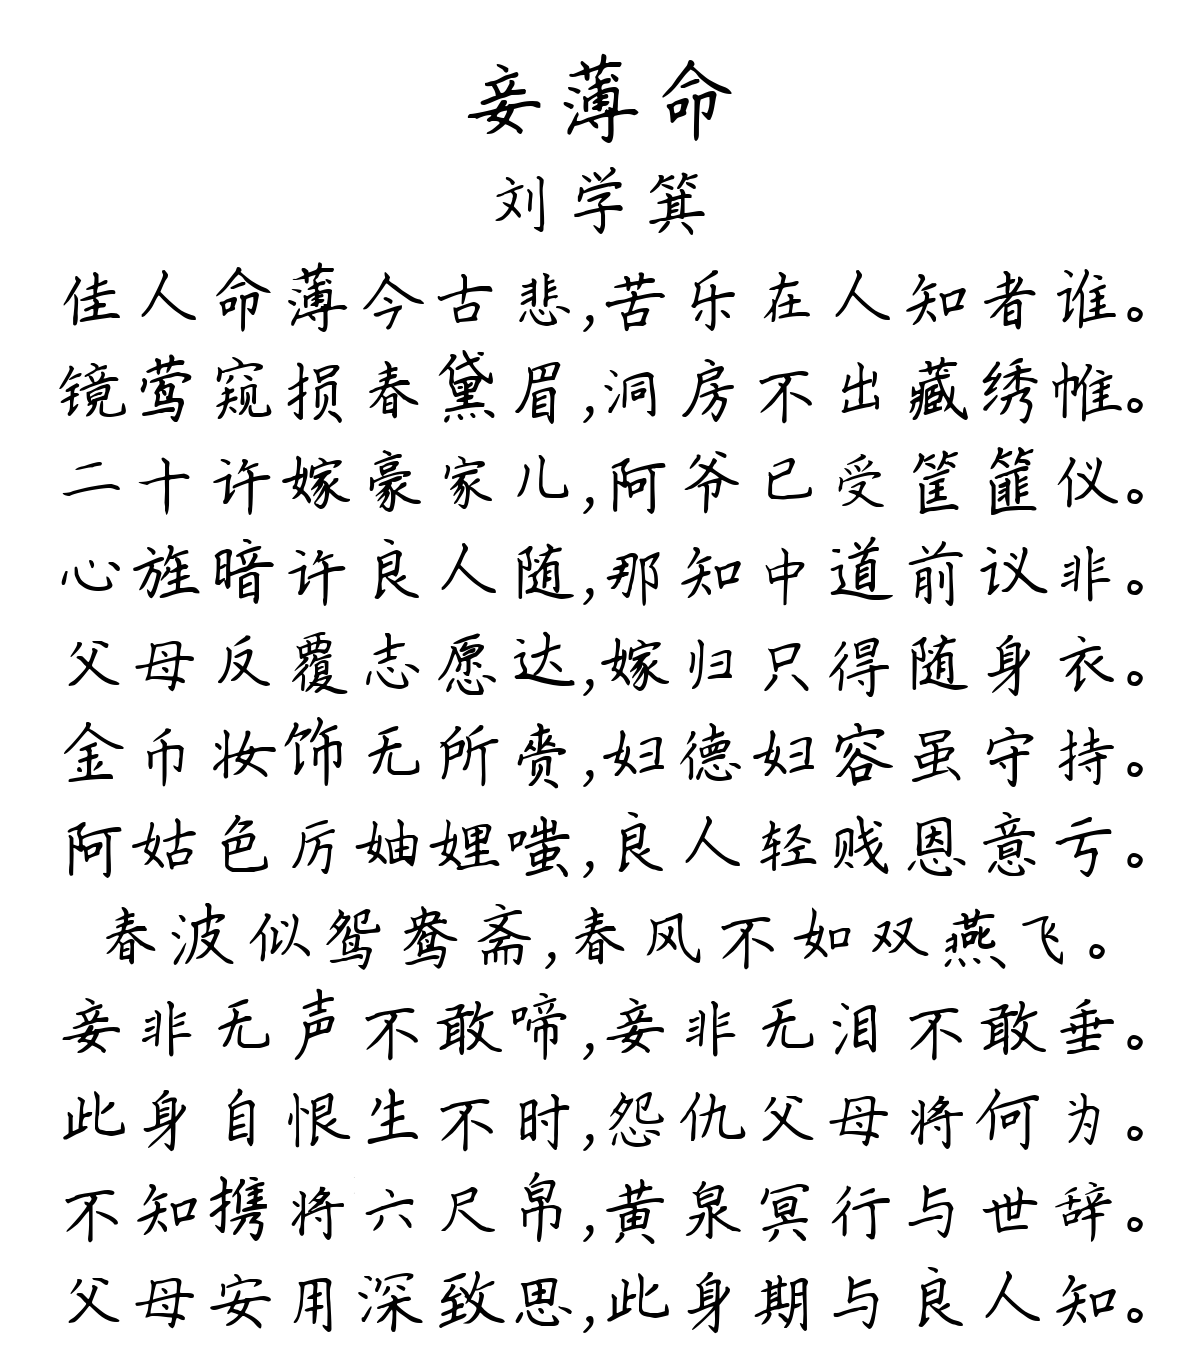 妾薄命
刘学箕
佳人命薄今古悲,苦乐在人知者谁。
镜莺窥损春黛眉,洞房不出藏绣帷。
二十许嫁豪家儿,阿爷已受筐篚仪。
心旌暗许良人随,那知中道前议非。
父母反覆志愿达,嫁归只得随身衣。
金币妆饰无所赍,妇德妇容虽守持。
阿姑色厉妯娌嗤,良人轻贱恩意亏。
春波似鸳鸯斋,春风不如双燕飞。
妾非无声不敢啼,妾非无泪不敢垂。
此身自恨生不时,怨仇父母将何为。
不知携将六尺帛,黄泉冥行与世辞。
父母安用深致思,此身期与良人知。